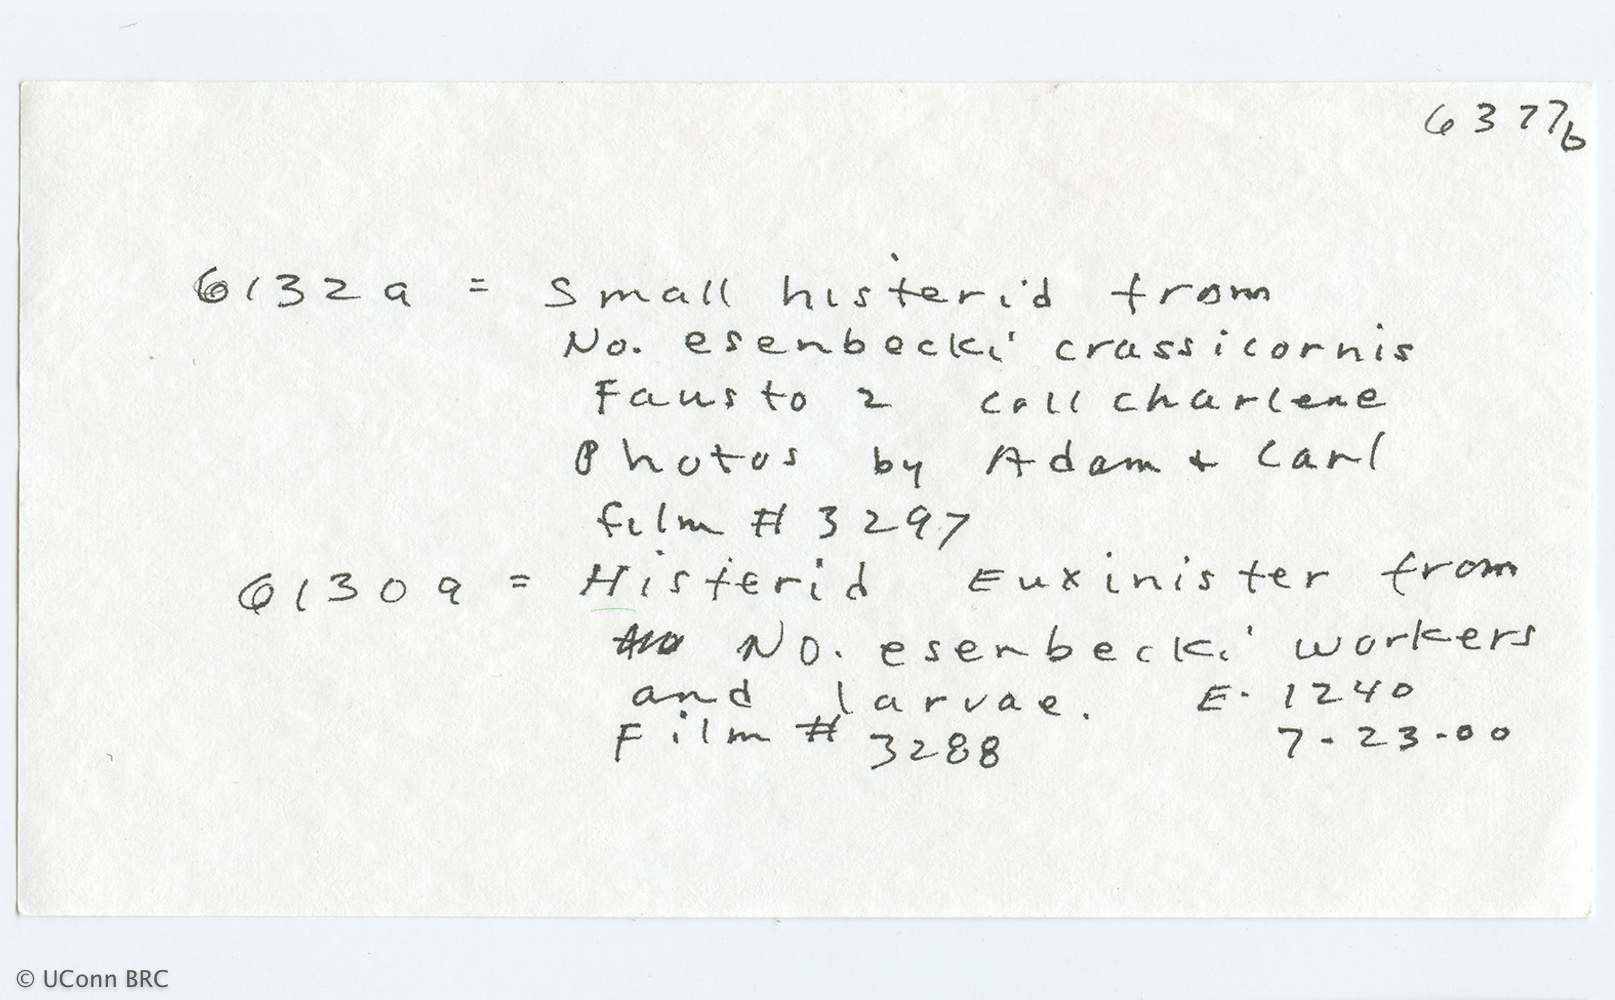 6377b
6132a = Small histerid from
No. esenbecki crassicornis
Fausto 2 Coll Charlene
Photos by Adam + Carl
film # 3297
6130a = Histerid Euxinister from
No. esenbecki workers
and larvae. E. 1240
Film # 3288 7-23-00
© UConn BRC